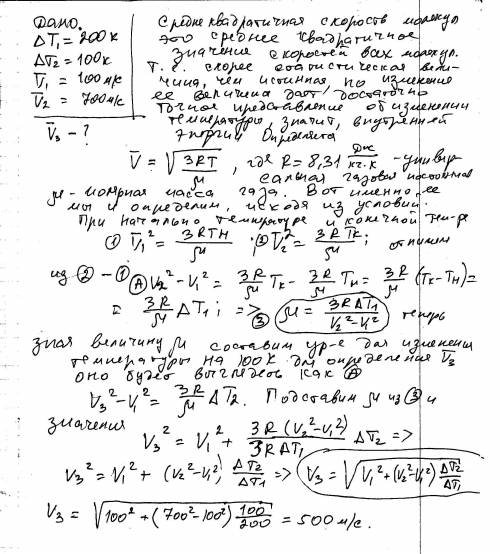 Дано.
ΔT₁ = 200 К
ΔT₂ = 100 К
V̄₁ = 100 м/с
V̄₂ = 700 м/с
V̄₃ - ?
Средне квадратичная скорость молекул
это среднее квадратичное
значение скоростей всех молекул.
Т.е. скорее статистическая вели-
чина, чем истинная, но изменение
ее величина дает достаточно
точное представление об изменении
температуры, значит, внутренней
энергии. Определяется
V̄ = √(3RT/μ), где R = 8,31 Дж/кг·К - универ
сальная газовая постоянная
μ - молярная масса газа. Вот именно ее
мы и определим, исходя из условий.
При начальной температуре и конечной тем-ре
① V̄₁² = 3RTн/μ ; ② V̄₂² = 3RTк/μ ; отнимем
из ② - ① Ⓐ V₂² - V₁² = 3R/μ Tк - 3R/μ Tн = 3R/μ (Tк - Tн) =
= 3R/μ ΔT₁ ; => ③ μ = 3RΔT₁/(V₂² - V₁²) теперь
зная величину μ составим ур-е для изменения
температуры на 100К для определения V̄₃
оно будет выглядеть как Ⓐ
V₃² - V₁² = 3R/μ ΔT₂. Подставим μ из ③ и
значения
V₃² = V₁² + 3R(V₂² - V₁²)/3RΔT₁ ΔT₂ =>
V₃² = V₁² + (V₂² - V₁²) ΔT₂/ΔT₁ => V₃ = √(V₁² + (V₂² - V₁²) ΔT₂/ΔT₁)
V₃ = √(100² + (700² - 100²) 100/200) = 500 м/с.